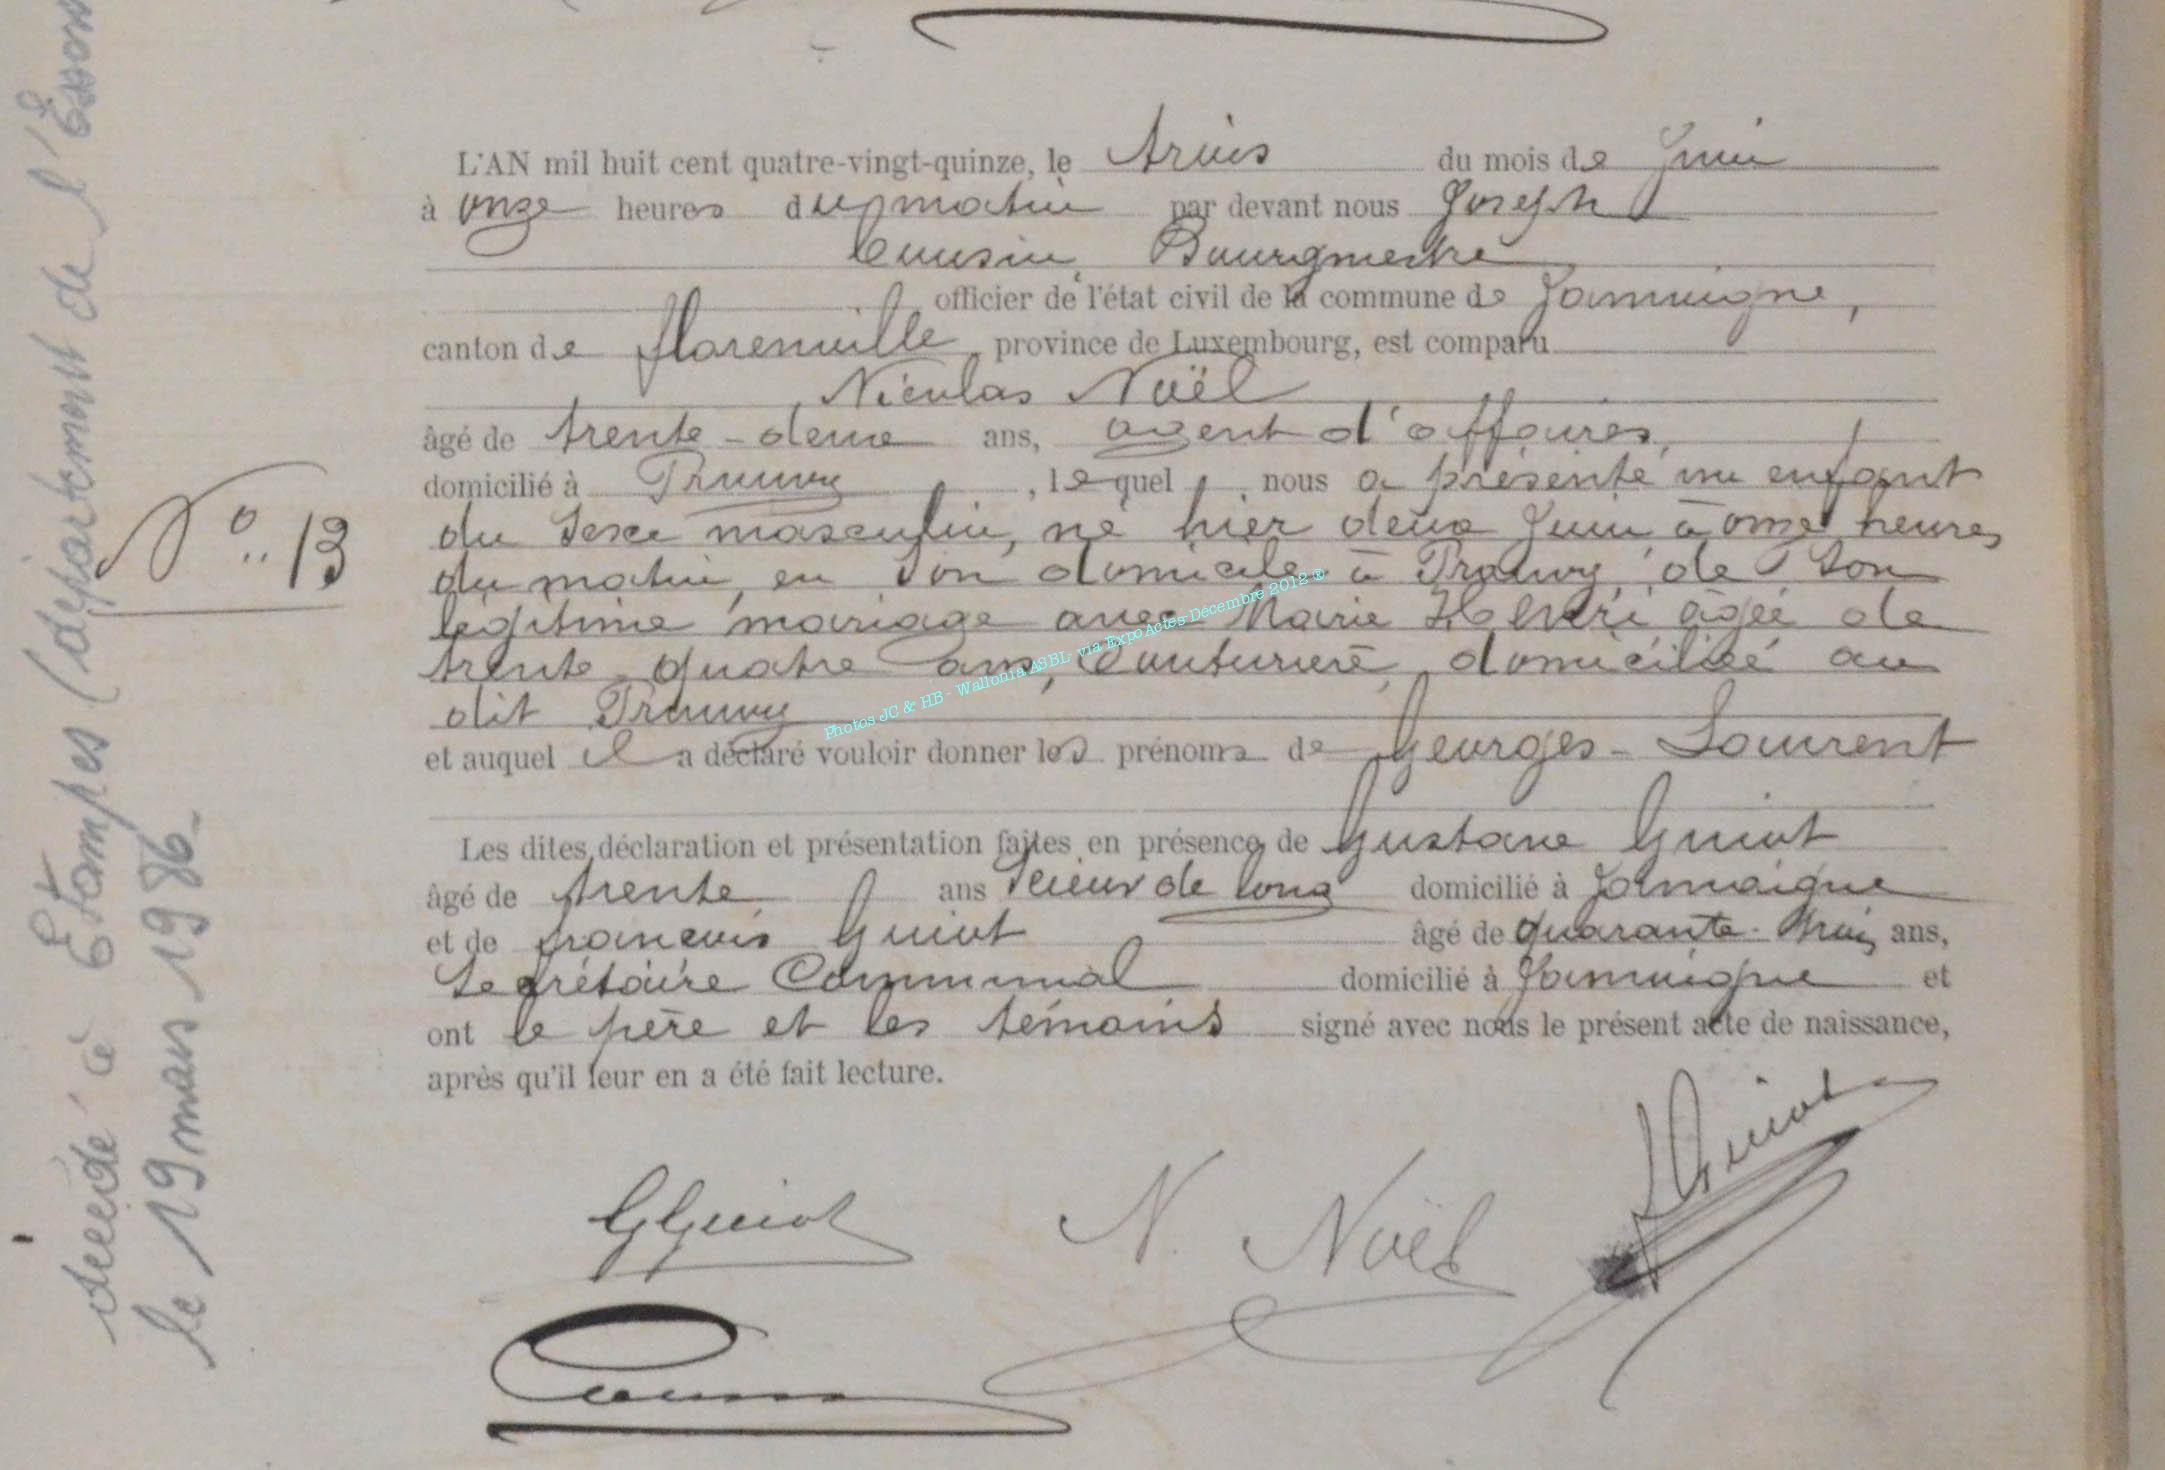 L'AN mil huit cent quatre-vingt-quinze, le trois du mois de Juin
à onze heures du matin par devant nous Joseph
Cousin, Bourgmestre
officier de l'état civil de la commune de Jamoigne,
canton de Florenville province de Luxembourg, est comparu
Nicolas Noël
âgé de trente-deux ans, agent d'affaires,
domicilié à Prouvy, lequel nous a présenté un enfant
du sexe masculin, né hier deux Juin à onze heures
du matin, en son domicile à Prouvy, de son
légitime mariage avec Marie Henri âgée de
trente quatre ans, Couturière, domiciliée au
dit Prouvy
et auquel il a déclaré vouloir donner les prénoms de Georges-Laurent
Les dites déclaration et présentation faites en présence de Gustave Guiot
âgé de trente ans Scieur de long domicilié à Jamoigne
et de François Guiot âgé de quarante-trois ans,
Secrétaire Communal domicilié à Jamoigne et
ont le père et les témoins signé avec nous le présent acte de naissance,
après qu'il leur en a été fait lecture.
GGuiot N. Noël FGuiot
Cousin
N° 13
décédé à Etampes (département de l'Essonn
le 19 mars 1986_
Photos JC & HB - Wallonia ASBL- via ExpoActes Décembre 2012 ®